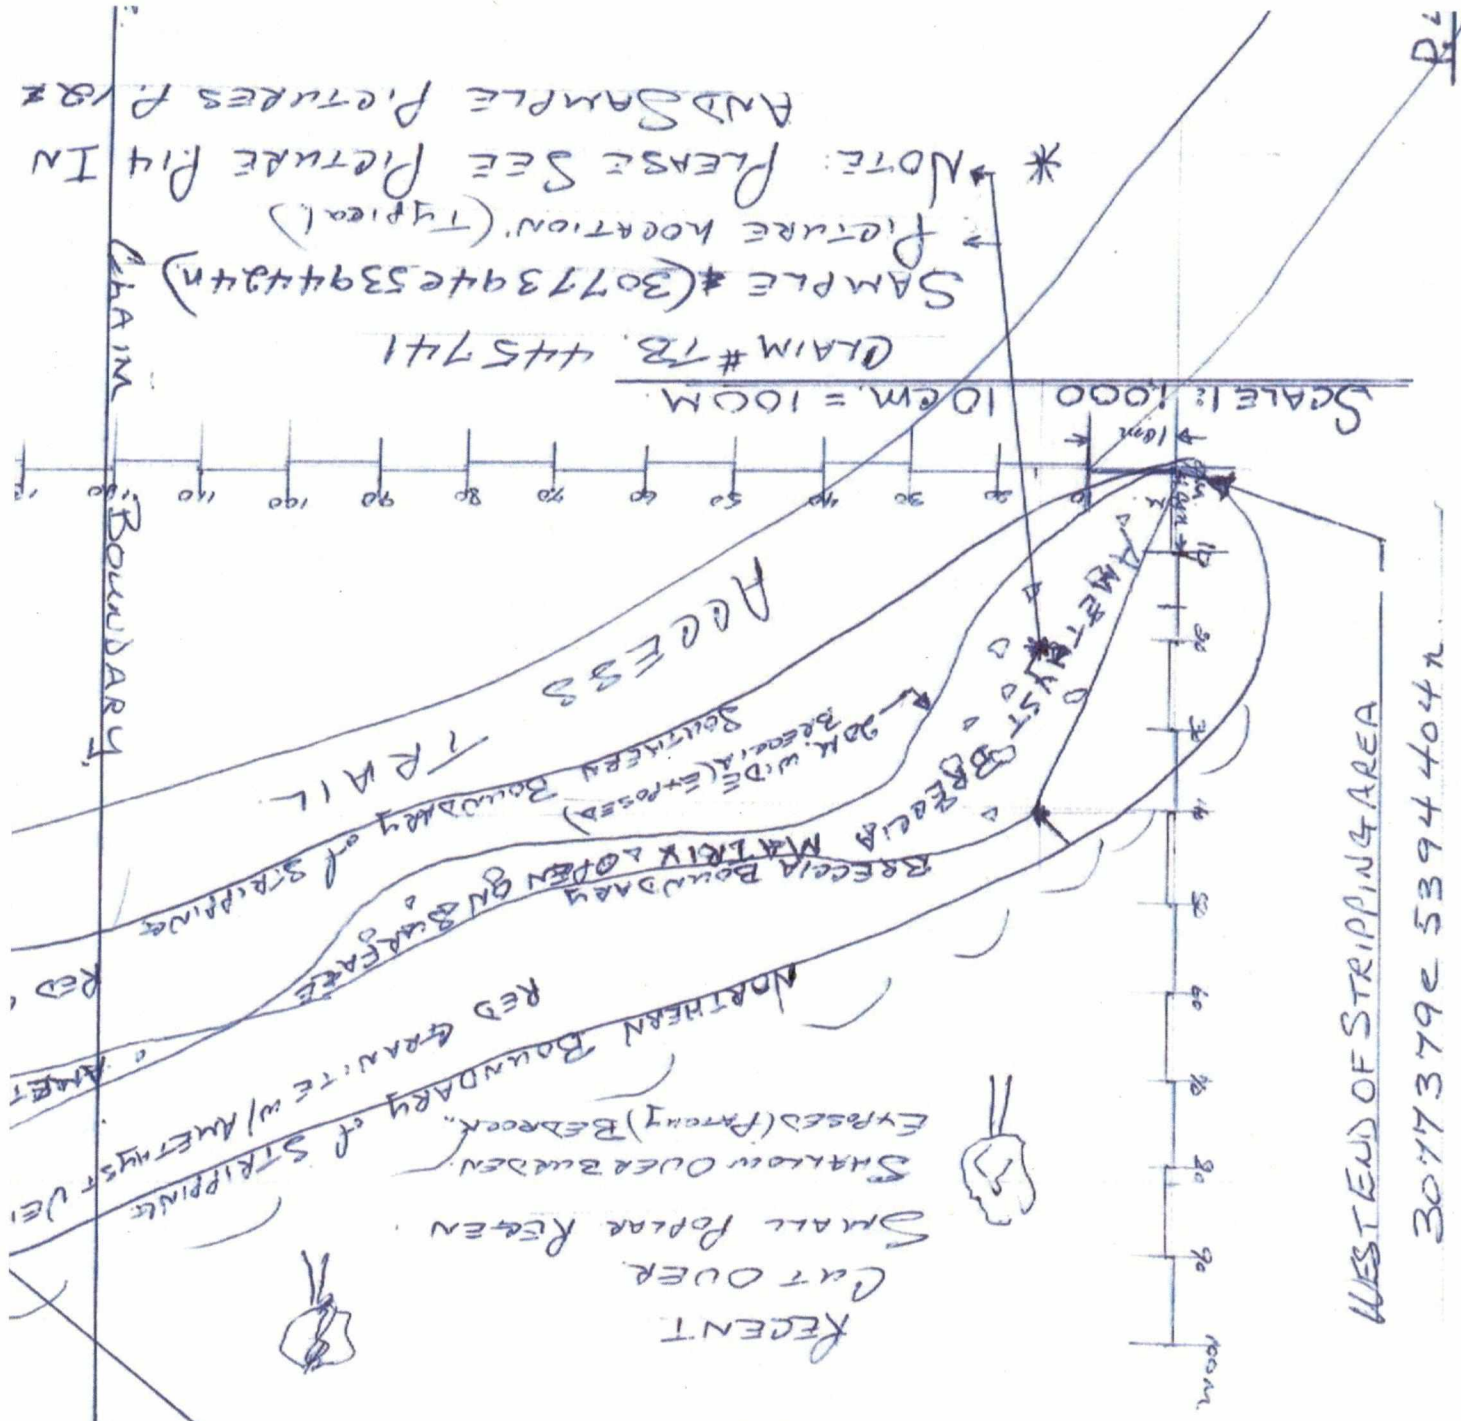 RECENT
CUT OVER
SMALL POPLAR REGEN.
SHALLOW OVERBURDEN
EXPOSED (PATCHY) BEDROCK
100m
90
80
70
60
50
40
30
20
10
NORTHERN BOUNDARY of STRIPPING
RED GRANITE W/ AMETHYST VEI
AMET
RED
BRECCIA BOUNDARY
MATRIX OPEN ON SURFACE
AMETHYST BRECCIA
20M. WIDE
BRECCIA (EXPOSED)
SOUTHERN BOUNDARY of STRIPPING
ACCESS TRAIL
CLAIM BOUNDARY
WEST END OF STRIPPING AREA
3077379e 5394404n
10m
10
20
30
40
50
60
70
80
90
100
110
SCALE 1:1,000 10 CM. = 100M.
CLAIM # TB. 445741
SAMPLE * (3077394e5394424n)
PICTURE LOCATION (Typical)
* NOTE: PLEASE SEE PICTURE P.14 IN
AND SAMPLE PICTURES P.12